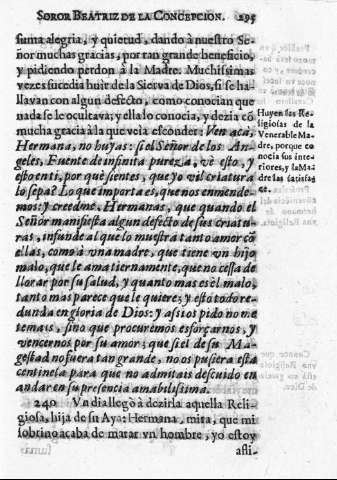 SOROR BEATRIZ DE LA CONCEPCION. 295
suma alegria, y quietud, dando à nuestro Se-
ñor muchas gracias, por tan grande beneficio,
y pidiendo perdon à la Madre. Muchissimas
vezes sucedia huir de la Sierva de Dios, si se ha-
llavan con algun defecto, como conocian que
nada se le ocultava; y ella lo conocia, y dezia cõ
mucha gracia à la que veia esconder: Ven acà,
Hermana, no huyas: si el Señor de los An-
geles, Fuente de infinita pureza, vè esto, y
està en ti, por què sientes, que yo vil criatura
lo sepa? Lo que importa es, que nos enmende-
mos: y creedme, Hermanas, que quando el
Señor manifiesta algun defecto de sus criatu-
ras, infunde al que lo muestra tanto amor cõ
ellas, como à vna madre, que tiene vn hijo
malo, que le ama tiernamente, que no cessa de
llorar por su salud, y quanto mas es el malo,
tanto mas parece que le quiere; y esto todo re-
dunda en gloria de Dios: y assi os pido no me
temais, sino que procuremos esforçarnos, y
vencernos por su amor; que si el de su Ma-
gestad no fuera tan grande, no os pusiera esta
centinela para que no admitais descuido en
andar en su presencia amabilissima.
240 Vn dia llegò à dezirla aquella Reli-
giosa, hija de su Aya: Hermana, mira, que mi
sobrino acaba de matar vn hombre, yo estoy
afli-
Huyen las Re-
ligiosas de la
Venerable Ma-
dre, porque co
nocia sus inte-
riores, y la Ma
dre las satisfa-
ce.